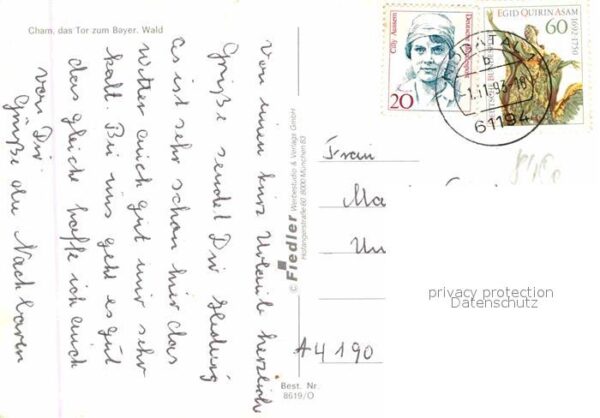 Cham, das Tor zum Bayer. Wald
Von einen kurz Urlaub herzlich
Grüße sendet Dir Hedwig
es ist sehr schön hier das
wetter auch gut nur sehr
kalt. Bei uns geht es gut
das gleiche hoffe ich auch
von Dir
Grüße den Nachbaren
© Fiedler Werbestudio & Verlags GmbH
8000 München 60
Best. Nr.
8619/O
Cilly Aussem
20
Deutsche Bundespost
EGID QUIRIN ASAM
1692-1750
60
b
61194
Frau
Ma
Un
A 4190
privacy protection
Datenschutz